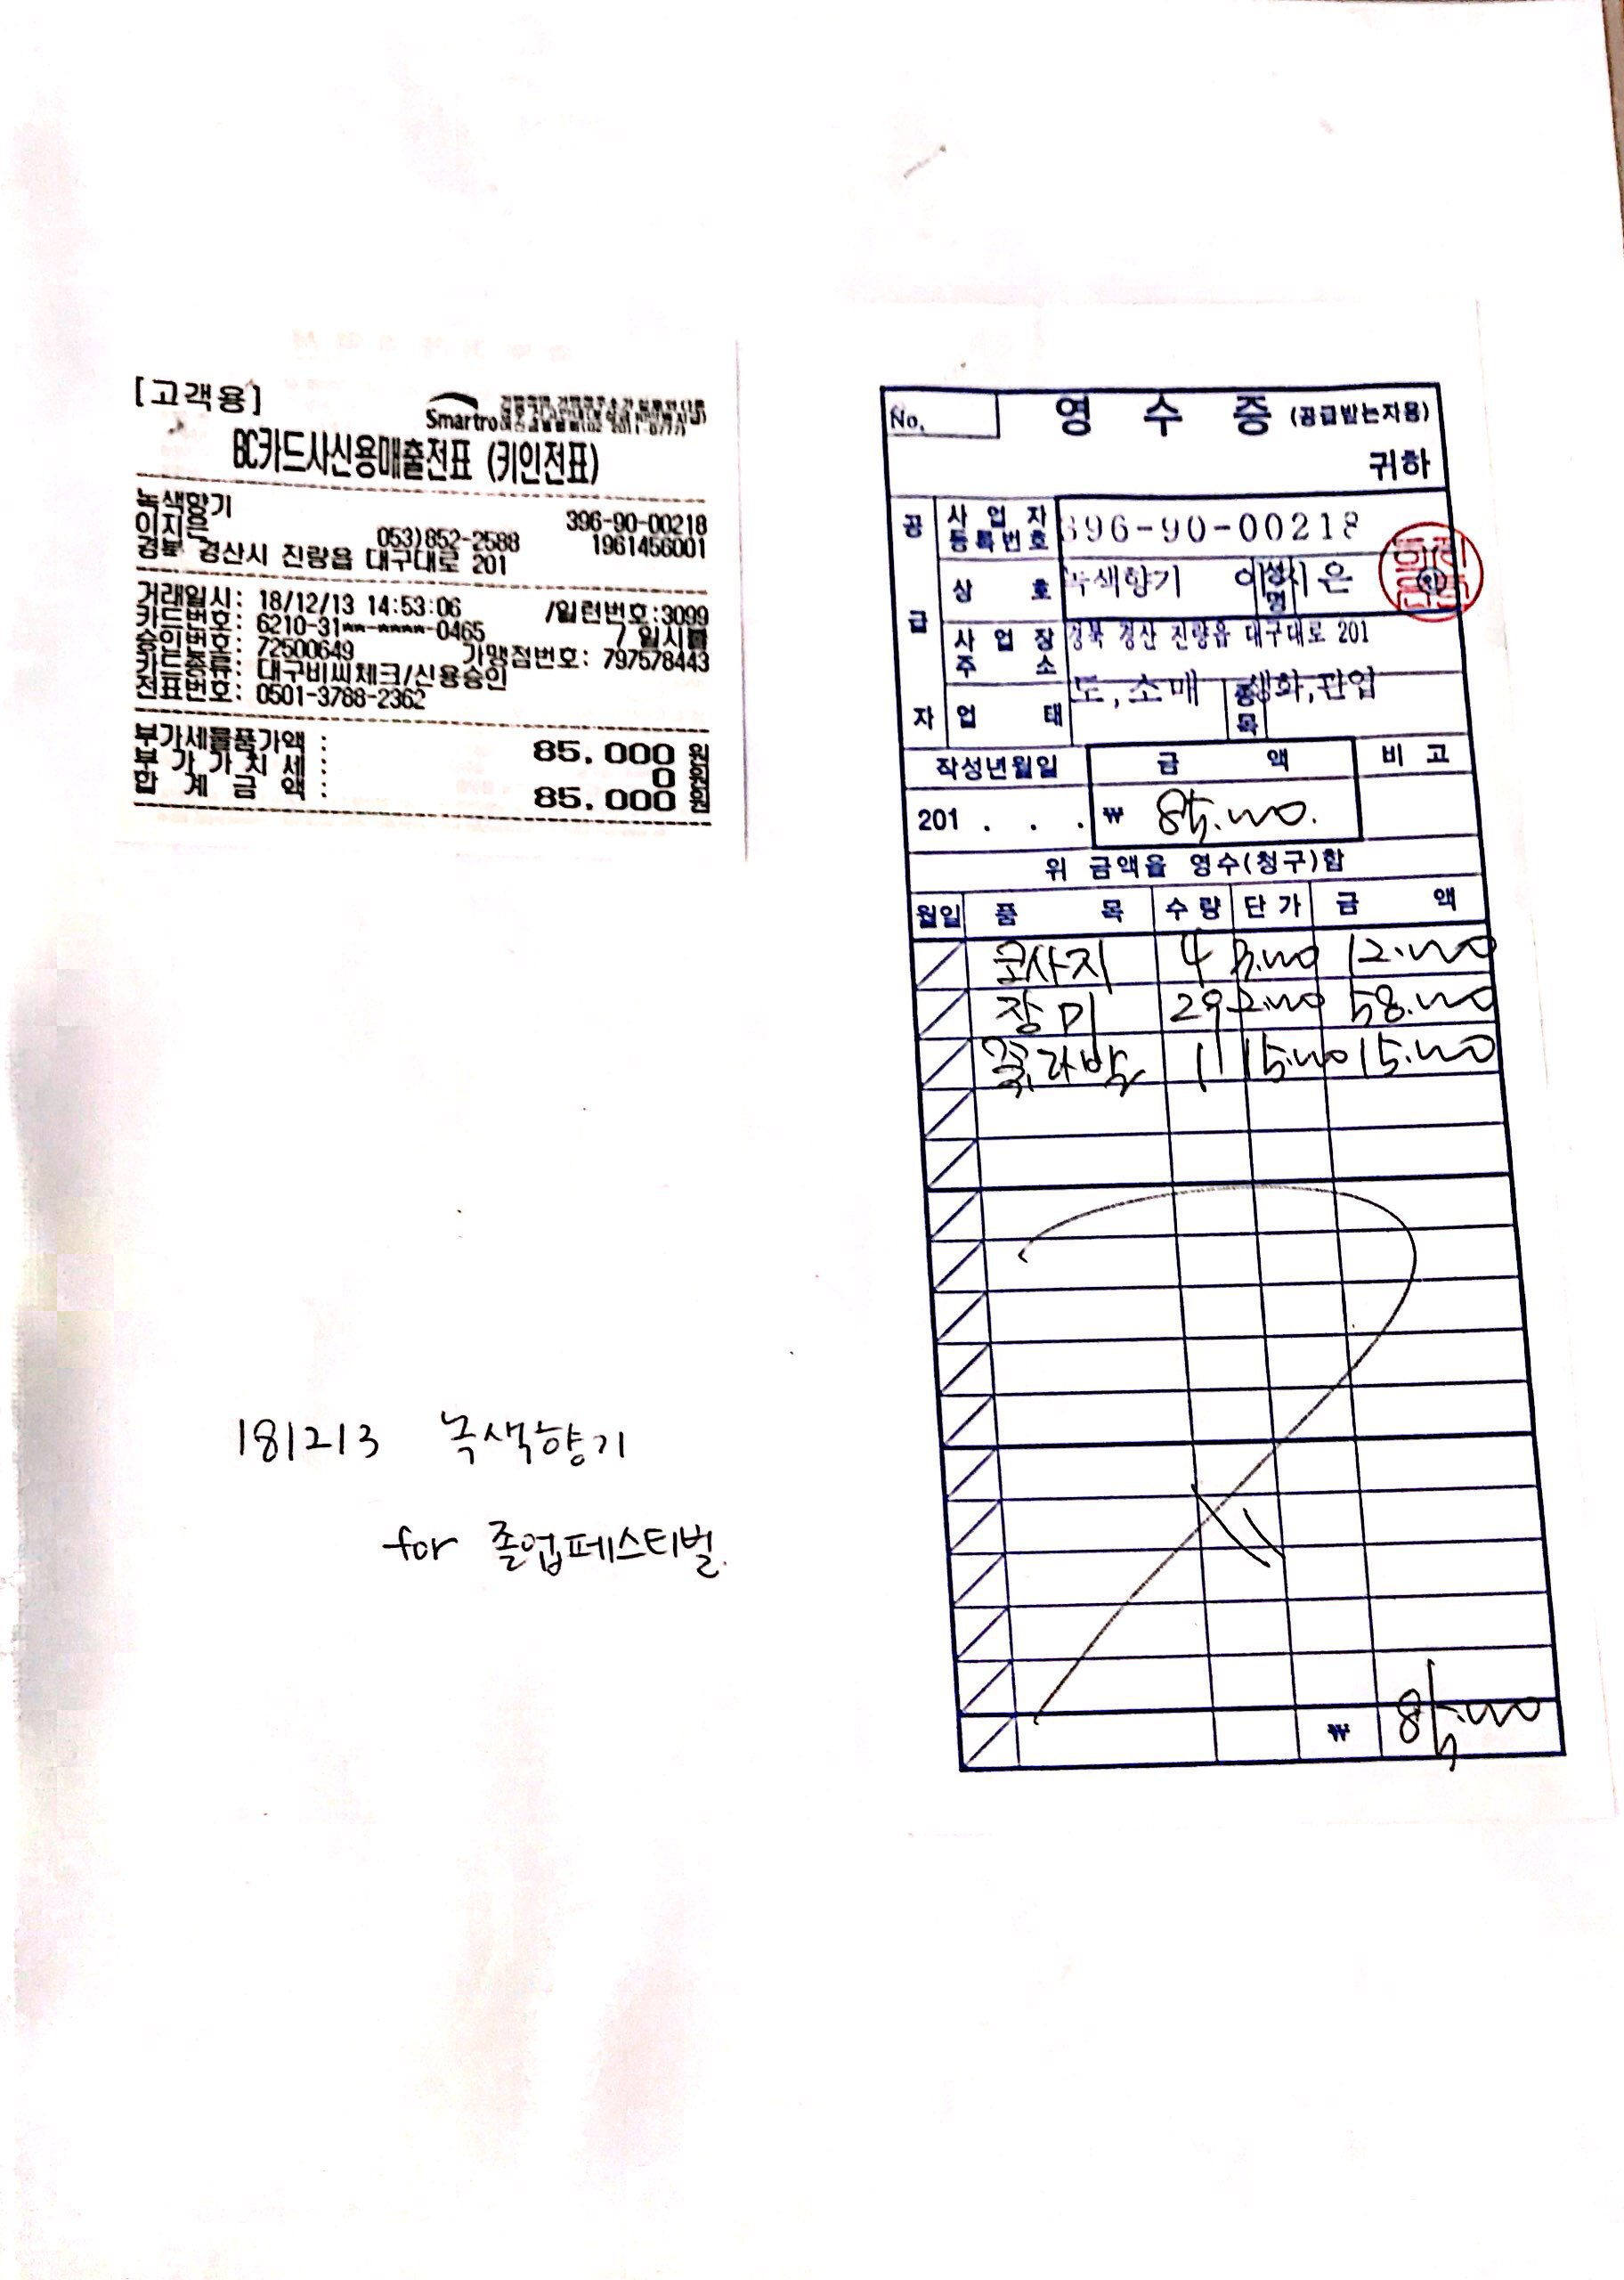 [고객용]
Smartro
BC카드사신용매출전표 (키인전표)
녹색향기 396-90-00218
이지은 053)852-2588 1961456001
경북 경산시 진량읍 대구대로 201
거래일시: 18/12/13 14:53:06 /일련번호:3099
카드번호: 6210-31**-****-0465 / 일시불
승인번호: 72500649 가맹점번호: 797578443
카드종류: 대구비씨체크/신용승인
전표번호: 0501-3788-2362
부가세물품가액 : 85,000 원
부 가 가 치 세 : 0 원
합 계 금 액 : 85,000 원
181213 녹색향기
for 졸업페스티벌.
No.
영 수 증 (공급받는자용)
귀하
공 급 자
사 업 자 등록번호 396-90-00218
상 호 녹색향기 성명 이지은 인
사 업 장 주 소 경북 경산 진량읍 대구대로 201
업 태 도,소매 종목 생화,관엽
작성년월일 금 액 비 고
201 . . . ₩ 85.000.
위 금액을 영수(청구)함
월일 품 목 수량 단가 금 액
4 3.000 12.000
장미 29 2.000 58.000
1 15.000 15.000
₩ 85.000